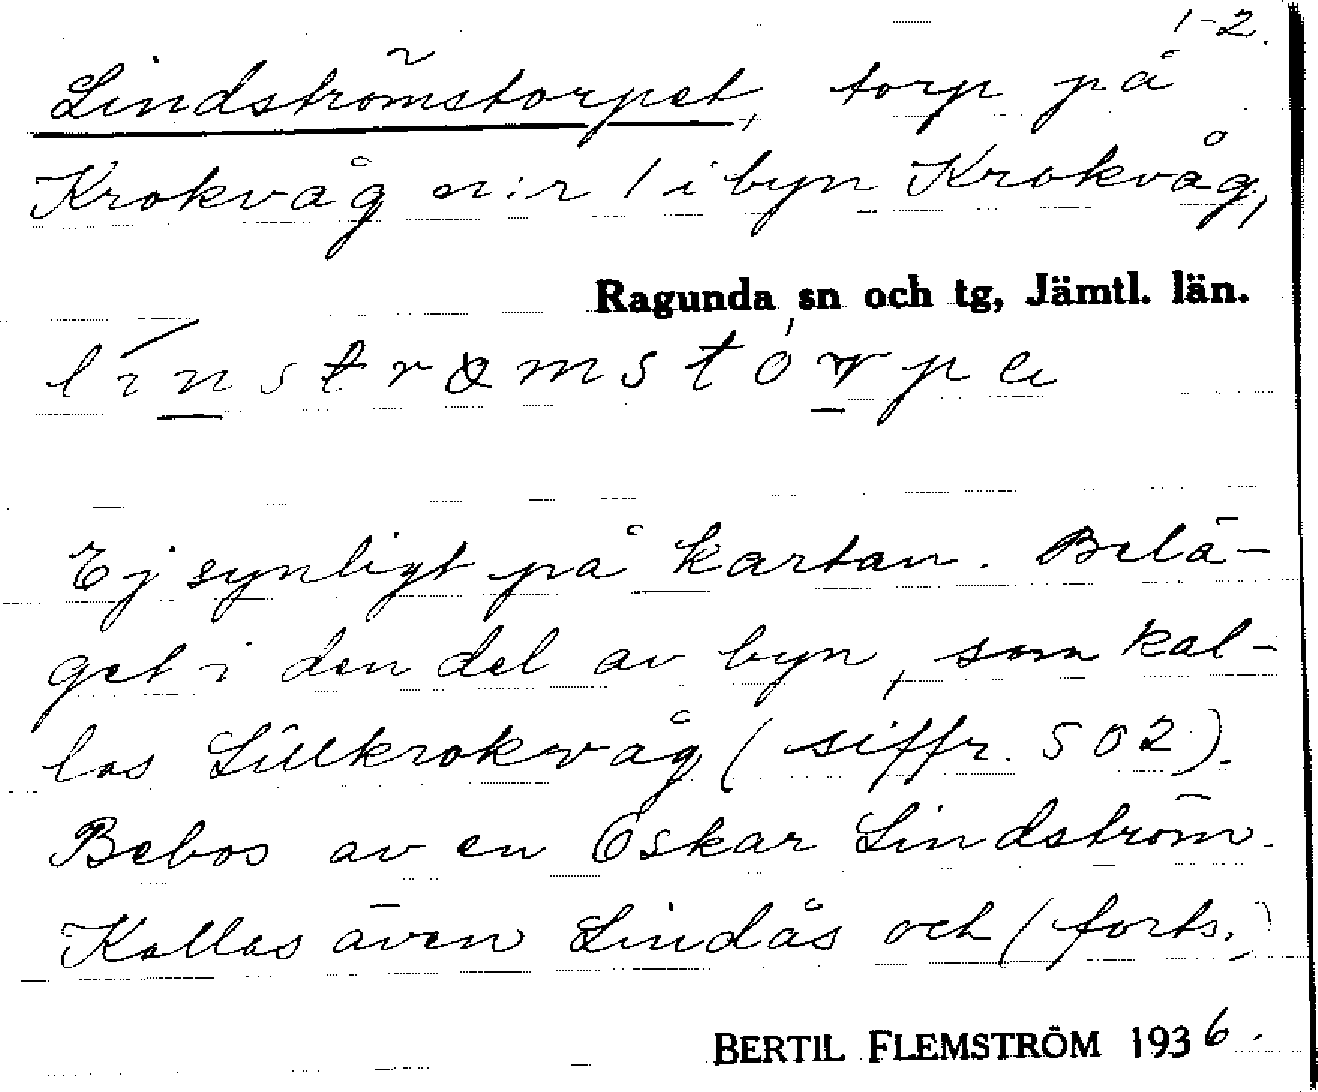 1-2.
Lindströmstorpet, torp på
Krokvåg n:r 1 i byn Krokvåg,
Ragunda sn och tg, Jämtl. län.
línstrømstórpe
Ej synligt på kartan. Belä-
get i den del av byn, som kal-
las Lillkrokvåg (siffr. 502).
Bebos av en Oskar Lindström.
Kallas även Lindås och (forts.)
BERTIL FLEMSTRÖM 1936.